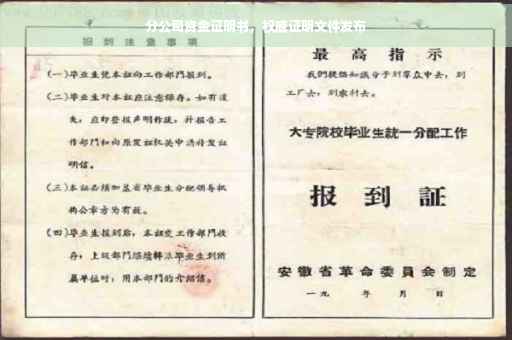 分公司资金证明书，权威证明文件发布
报到注意事项
(一)毕业生凭本证向工作部門报到。
(二)毕业生对本证应注意保存。如有遺
失，应即登报声明作废，并报告工
作部門和向原发证机关申請补发证
明信。
(三)本证必须加盖省毕业生分配领导机
构公章方为有效。
(四)毕业生报到后，本证交工作部門收
存；上级部門繼續轉派毕业生到所
属单位时，用本部門的介绍信。
最高指示
我們提倡知識分子到羣众中去，到
工厂去，到农村去。
大专院校毕业生統一分配工作
报到証
安徽省革命委員会制定
一九 年 月 日